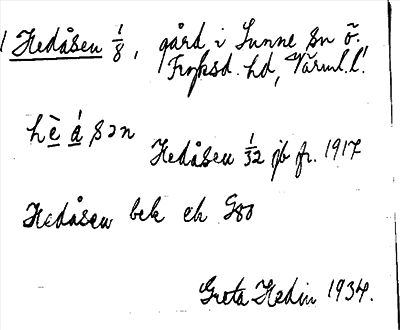 Hedåsen 1/8, gård i Sunne sn ö.
Fryksd. hd, Värml. l.
hè á sən
Hedåsen 1/32 jb fr. 1917
Hedåsen bek ek G80
Greta Hedin 1934.